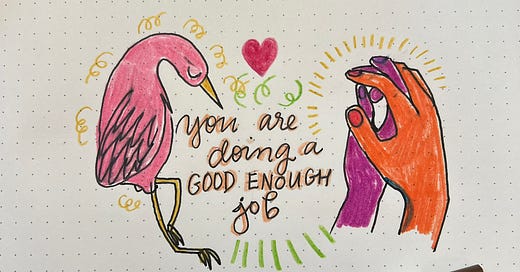 you are
doing a
GOOD ENOUGH
job